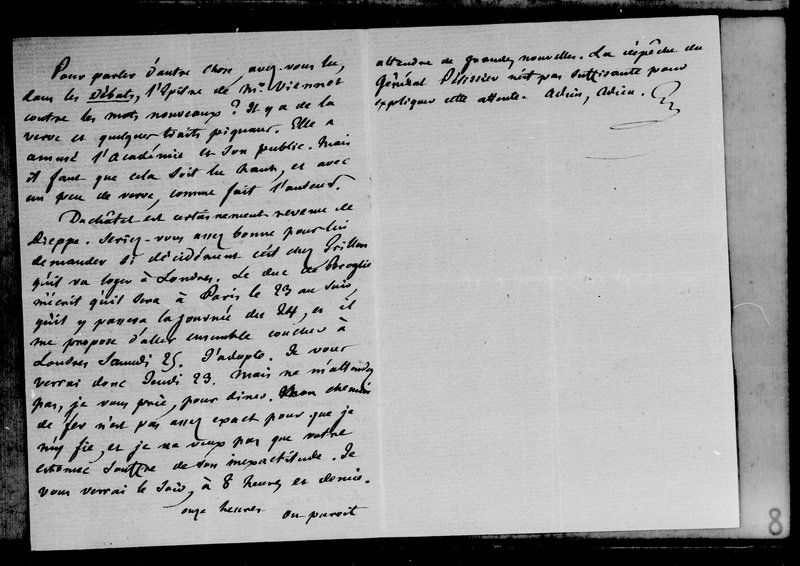 Pour parler d'autre chose, avez-vous lu,
dans les Débats, l'Epître de Mr Viennet
contre les mots nouveaux ? Il y a de la
verve et quelques traits piquans. Elle a
amusé l'Académie et son public. Mais
il faut que cela soit lu haut, et avec
un peu de verve, comme fait l'auteur.
Duchâtel est certainement revenu de
Dieppe. Seriez-vous assez bonne pour lui
demander si décidément c'est chez Grillon
qu'il va loger à Londres. Le duc de Broglie
m'écrit qu'il sera à Paris le 23 au soir,
qu'il y passera la journée du 24, et il
me propose d'aller ensemble coucher à
Londres Samedi 25. J'adopte. Je vous
verrai donc Jeudi 23. Mais ne m'attendez
pas, je vous prie, pour dîner. Mon chemin
de fer n'est pas assez exact pour que je
m'y fie, et je ne veux pas que votre
estomac souffre de son inexactitude. Je
vous verrai le soir, à 8 heures et demie.
onze heures
On paroit
attendre de grandes nouvelles. La dépêche du
Général Pélissier n'est pas suffisante pour
expliquer cette attente. Adieu, Adieu.
8